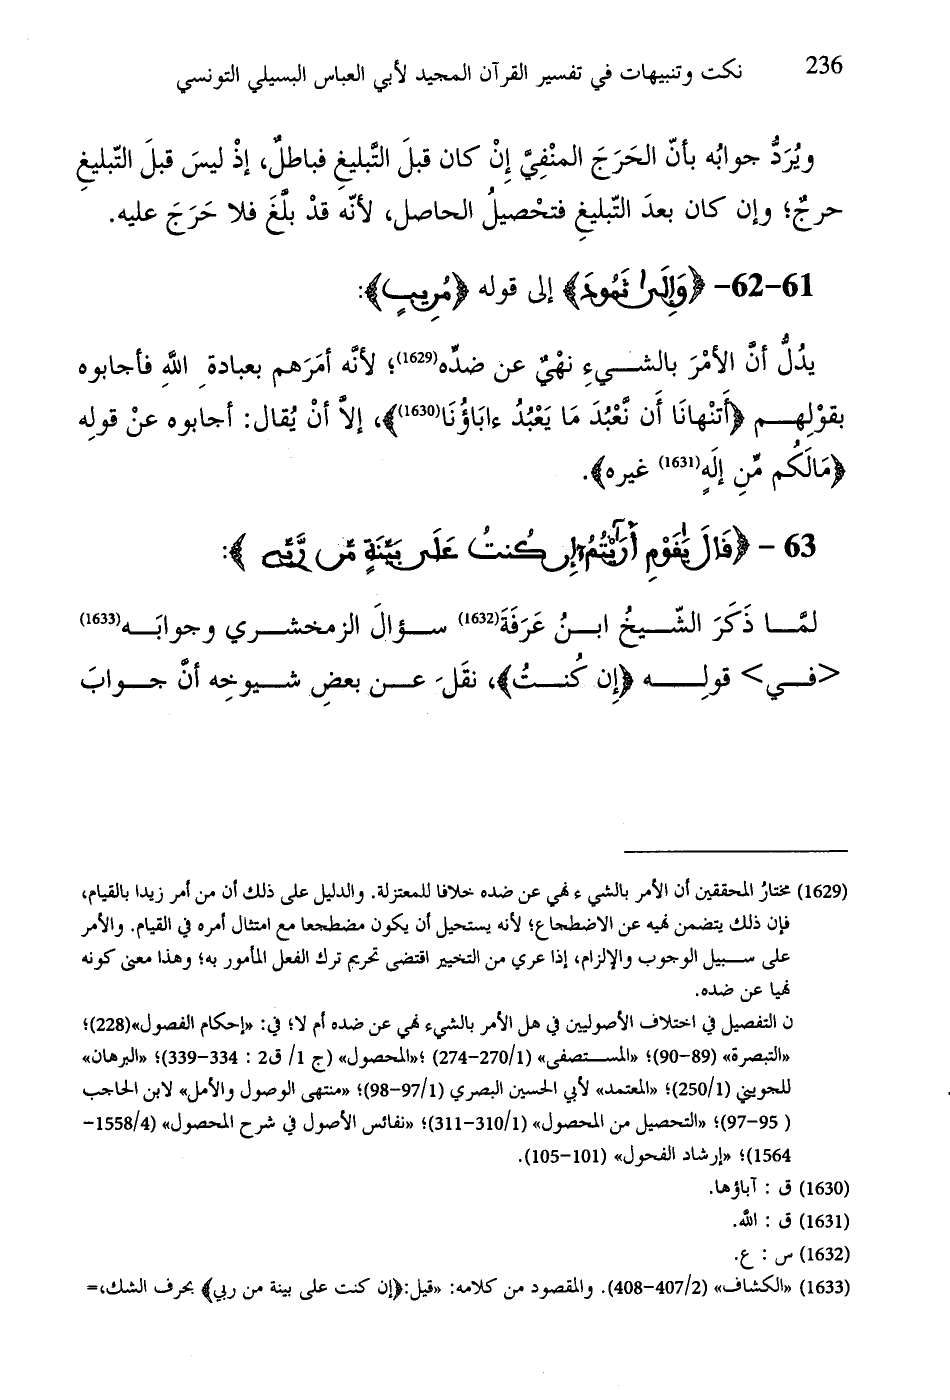 236
نكت وتنبيهات في تفسير القرآن المجيد لأبي العباس البسيلي التونسي
ويُرَدُّ جوابُه بأنّ الحَرَجَ المنْفِيَّ إنْ كان قبلَ التَّبليغِ فباطلٌ، إذْ ليسَ قبلَ التَّبليغِ
حرجٌ؛ وإن كان بعدَ التّبليغِ فتحْصيلُ الحاصل، لأنّه قدْ بلَّغَ فلا حَرَجَ عليه.
61-62- ﴿وَإِلَىٰ ثَمُودَ﴾ إلى قوله ﴿مُرِيبٍ﴾:
يدُلُّ أنَّ الأمْرَ بالشيءِ نهْيٌ عن ضدِّه(1629)؛ لأنَّه أمَرَهم بعبادةِ اللَّهِ فأجابوه
بقوْلِهم ﴿أَتَنْهَانَا أَن نَّعْبُدَ مَا يَعْبُدُ ءابَاؤُنَا(1630)﴾، إلاَّ أنْ يُقال: أجابوه عنْ قولِه
﴿مَالَكُم مِّنِ إلَهٍ(1631) غيره﴾.
63 - ﴿قَالَ يَٰقَوْمِ أَرَٰيْتُمُۥٓ إِن كُنتُ عَلَىٰ بَيِّنَةٍ مِّن رَّبِّي ﴾:
لمَّا ذَكَرَ الشّيخُ ابنُ عَرَفَةَ(1632) سؤالَ الزمخشري وجوابَه(1633)
<في> قولِه ﴿إن كُنتُ﴾، نقَل عن بعضِ شيوخِه أنَّ جوابَ
(1629) مختارُ المحققين أن الأمر بالشيء نهي عن ضده خلافا للمعتزلة. والدليل على ذلك أن من أمر زيدا بالقيام،
فإن ذلك يتضمن نهيه عن الاضطجاع؛ لأنه يستحيل أن يكون مضطجعا مع امتثال أمره في القيام. والأمر
على سبيل الوجوب والإلزام، إذا عري من التخيير اقتضى تحريم ترك الفعل المأمور به؛ وهذا معنى كونه
نهيا عن ضده.
ن التفصيل في اختلاف الأصوليين في هل الأمر بالشيء نهي عن ضده أم لا؛ في: «إحكام الفصول»(228)؛
«التبصرة» (89-90)؛ «المستصفى» (270/1-274) ؛«المحصول» (ج 1/ ق2 : 334-339)؛ «البرهان»
للجويني (250/1)؛ «المعتمد» لأبي الحسين البصري (97/1-98)؛ «منتهى الوصول والأمل» لابن الحاجب
( 95-97)؛ «التحصيل من المحصول» (310/1-311)؛ «نفائس الأصول في شرح المحصول» (1558/4-
1564)؛ «إرشاد الفحول» (101-105).
(1630) ق : آباؤها.
(1631) ق : اللَّه.
(1632) س : ع.
(1633) «الكشاف» (407/2-408). والمقصود من كلامه: «قيل:﴿إن كنت على بينة من ربي﴾ بحرف الشك،=